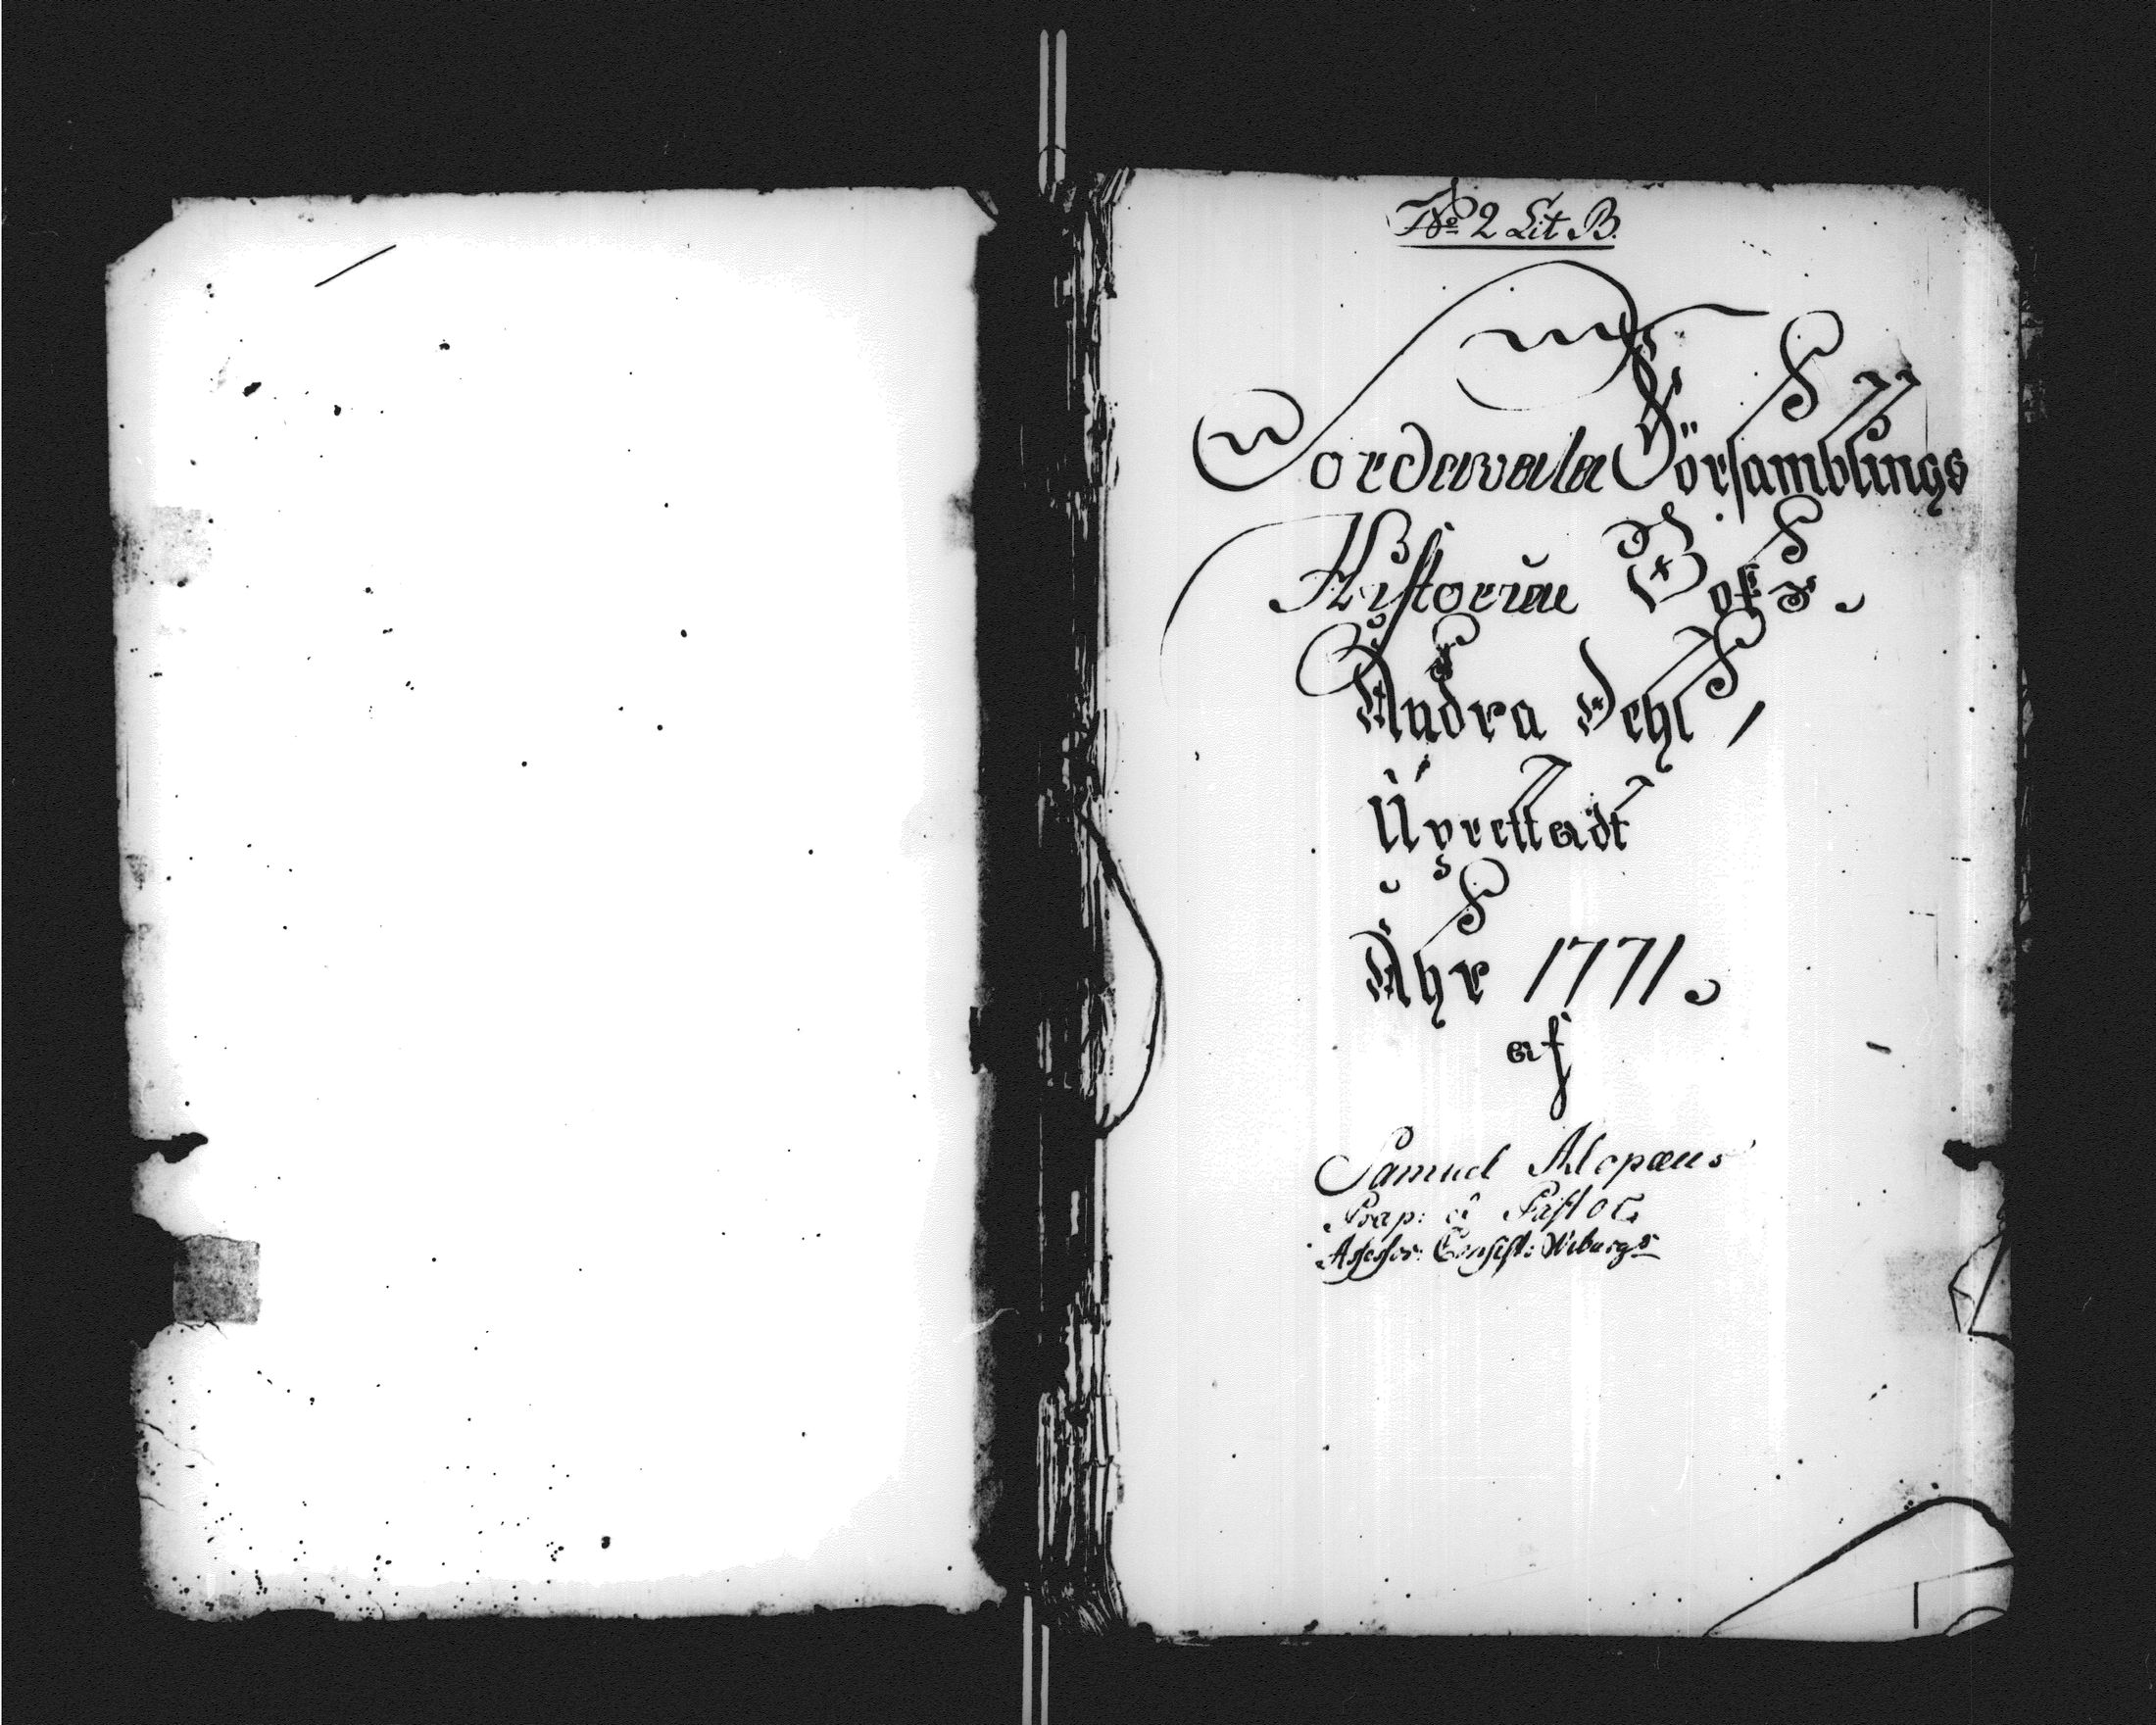 No 2 Lit B.
Sordawala Församblings
Historiæ Boks
Andra Dehl,
Uprettadt
Åhr 1771.
af
Samuel Alopæus
Præp: & Pastor
Assessor: Consist: Wiburgs